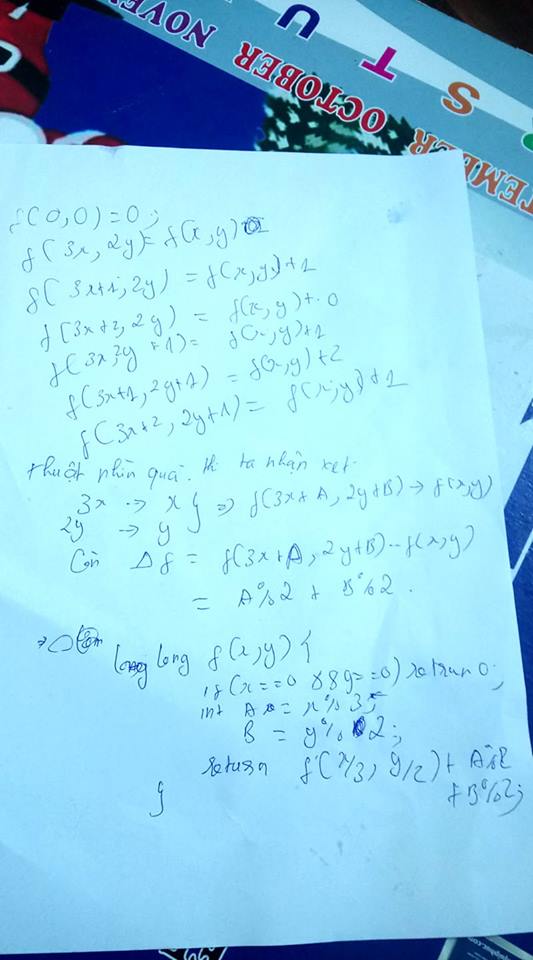 NOVE
OCTOBER
TEMBER
S T U
f(0,0)=0;
f(3x, 2y)= f(x,y)
f(3x+1, 2y) = f(x,y)+1
f(3x+2, 2y) = f(x,y)+0
f(3x, 2y+1)= f(x,y)+1
f(3x+1, 2y+1) = f(x,y)+2
f(3x+2, 2y+1)= f(x,y)+1
thuột nhìn quá. thì ta nhận xét.
3x → x } => f(3x+A, 2y+B) → f(x,y)
2y → y
Còn Δf = f(3x+A, 2y+B)-f(x,y)
= A%2 + B%2.
long long f(x,y) {
if(x==0 && y==0) retran 0;
int A = x%3;
B = y%2;
return f(x/3, y/2) + A%2
+ B%2;
}